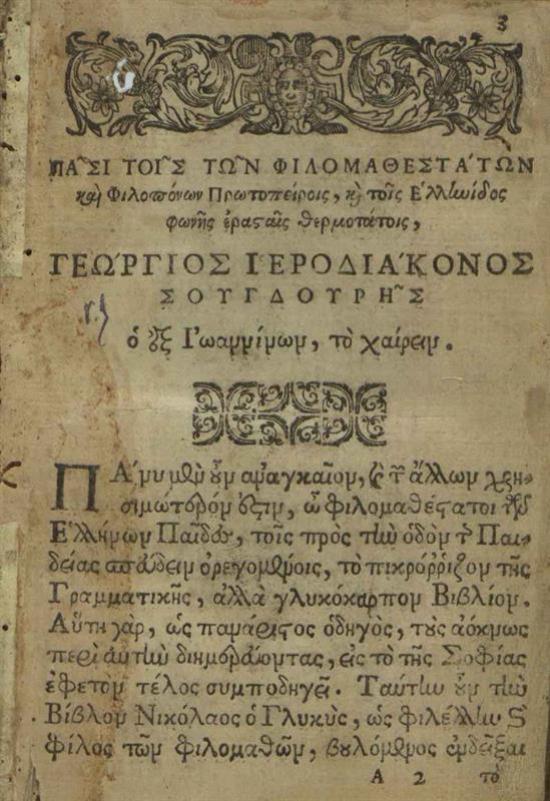 3
ΠΑ͂ΣΙ ΤΟΙ͂Σ ΤΩ͂Ν ΦΙΛΟΜΑΘΕΣΤΆΤΩΝ
καὶ Φιλοπόνων Πρωτοπείροις, κὴ τοῖς Ἑλληνίδος
φωνῆς ἐραταῖς θερμοτάτοις,
ΓΕΩΡΓΙΟΣ ΙΕΡΟΔΙΆΚΟΝΟΣ
ΣΟΥΓΔΟΥΡΗ͂Σ
ὁ ἐξ Ἰωαννίνων, τὸ χαίρειν.
ΠΆνυ μὲν οὖν ἀναγκαῖον, ϗ τ ἄλλων χρη-
σιμώτερόν ἐστιν, ὦ φιλομαθέστατοι τῶν
Ἑλλήνων Παῖδες, τοῖς πρὸς τὴν ὁδὸν τ Παι-
δείας σπεύδειν ὀρεγομένοις, τὸ πικρόῤῥιζον τῆς
Γραμματικῆς, ἀλλὰ γλυκόκαρπον Βιβλίον.
Αὕτη γὰρ, ὡς πανάριστος ὁδηγὸς, τοὺς ἀόκνως
περὶ αὐτὴν διημερεύοντας, εἰς τὸ τῆς Σοφίας
ἐφετὸν τέλος συμποδηγεῖ. Ταύτην οὖν τὴν
Βίβλον Νικόλαος ὁ Γλυκὺς, ὡς φιλέλλην ϗ
φίλος τῶν φιλομαθῶν, βουλόμενος ἐνδεῖξαι
A 2 τὸ